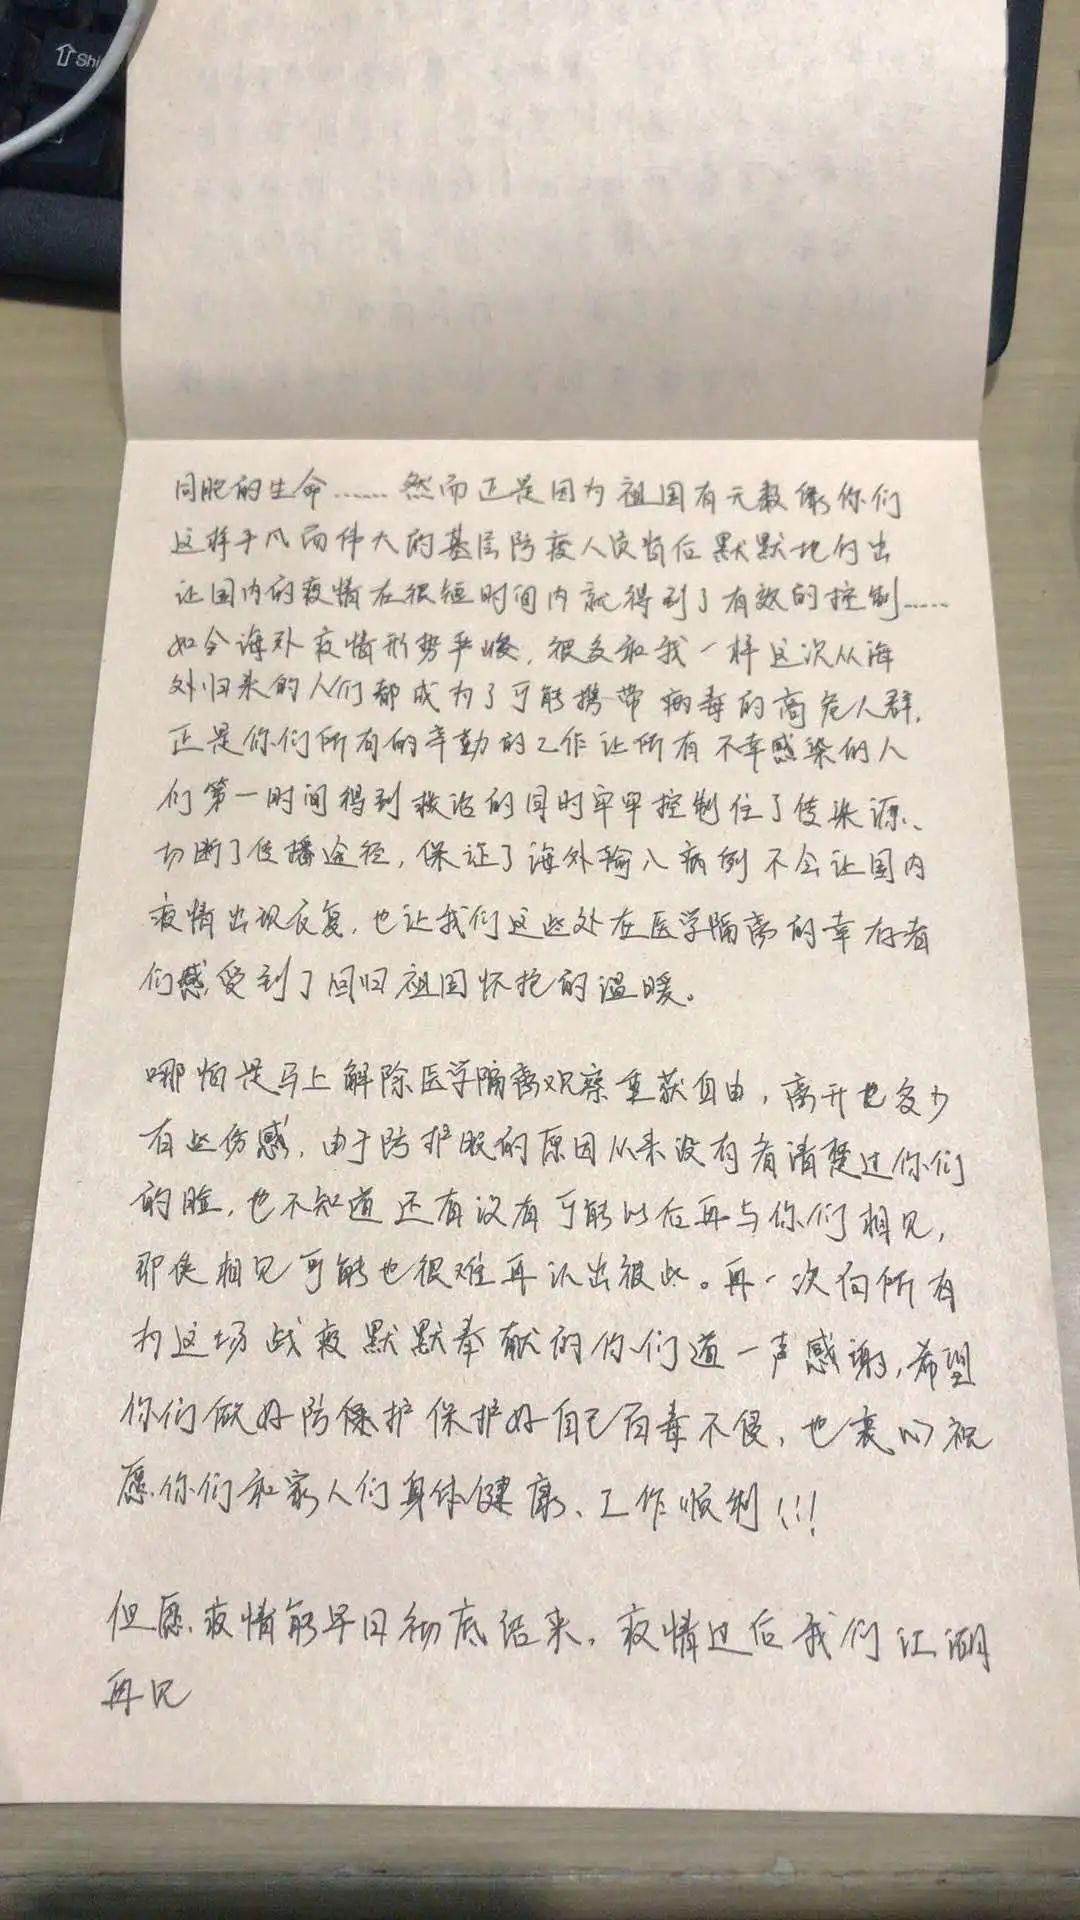 Shi
同胞的生命……然而正是因为祖国有无数像你们
这样平凡而伟大的基层防疫人员背后默默地付出
让国内的疫情在很短时间内就得到了有效的控制……
如今海外疫情形势严峻，很多和我一样这次从海
外归来的人们都成为了可能携带病毒的高危人群，
正是你们所有的辛勤的工作让所有不幸感染的人
们第一时间得到救治的同时牢牢控制住了传染源、
切断了传播途径，保证了海外输入病例不会让国内
疫情出现反复，也让我们这些处在医学隔离的幸存者
们感受到了回归祖国怀抱的温暖。
哪怕是马上解除医学隔离观察重获自由，离开也多少
有些伤感，由于防护服的原因从来没有看清楚过你们
的脸，也不知道还有没有可能以后再与你们相见，
即使相见可能也很难再认出彼此。再一次向所有
为这场战疫默默奉献的你们道一声感谢，希望
你们做好防护保护好自己百毒不侵，也衷心祝
愿你们和家人们身体健康、工作顺利！！！
但愿疫情能早日彻底结束，疫情过后我们江湖
再见